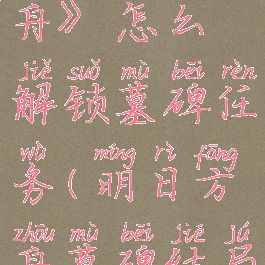 舟》怎么
jiě suǒ mù bēi rèn
解锁墓碑任
wù míng rì fāng
务(明日方
zhōu mù bēi jié jú
舟墓碑结局